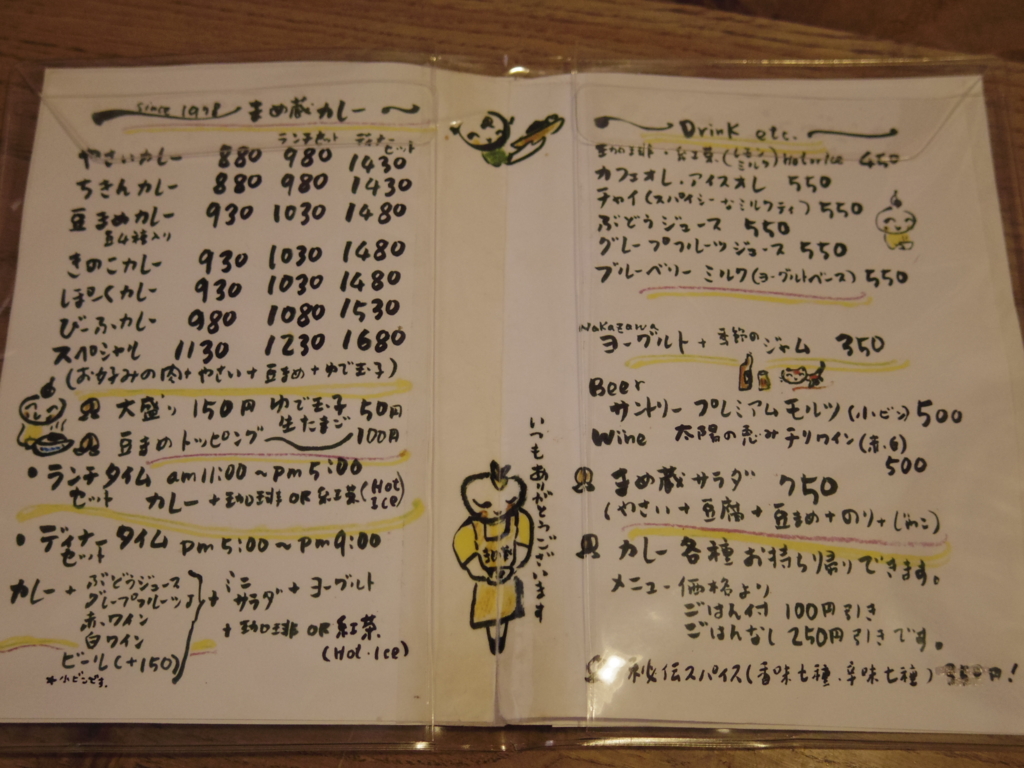 since 1978 まめ蔵カレー
ランチセット ディナーセット
やさいカレー 880 980 1430
ちきんカレー 880 980 1430
豆まめカレー 930 1030 1480
豆4種入り
きのこカレー 930 1030 1480
ぽーくカレー 930 1030 1480
びーふカレー 980 1080 1530
スペシャル 1130 1230 1680
(お好みの肉+やさい+豆まめ+ゆで玉子)
大盛り 150円 ゆで玉子 50円
生たまご
豆まめトッピング 100円
・ランチタイム am11:00〜pm5:00
セット カレー+珈琲OR紅茶(Hot Ice)
・ディナータイム pm5:00〜pm9:00
セット
カレー+ ぶどうジュース
グレープフルーツJ
赤ワイン
白ワイン
ビール(+150)
*小ビンです。
+ミニサラダ+ヨーグルト
+珈琲OR紅茶
(Hot・Ice)
いつもありがとうございます
Drink etc.
珈琲・紅茶(レモン ミルク)Hot or Ice 450
カフェオレ・アイスオレ 550
チャイ(スパイシーなミルクティ) 550
ぶどうジュース 550
グレープフルーツジュース 550
ブルーベリーミルク(ヨーグルトベース) 550
Nakazawa
ヨーグルト+季節のジャム 350
Beer
サントリープレミアムモルツ(小ビン) 500
Wine 太陽の恵みチリワイン(赤・白)
500
まめ蔵サラダ 750
(やさい+豆腐+豆まめ+のり+じゃこ)
カレー各種お持ち帰りできます。
メニュー価格より
ごはん付 100円引き
ごはんなし 250円引きです。
秘伝スパイス(香味七種・辛味七種) 350円!